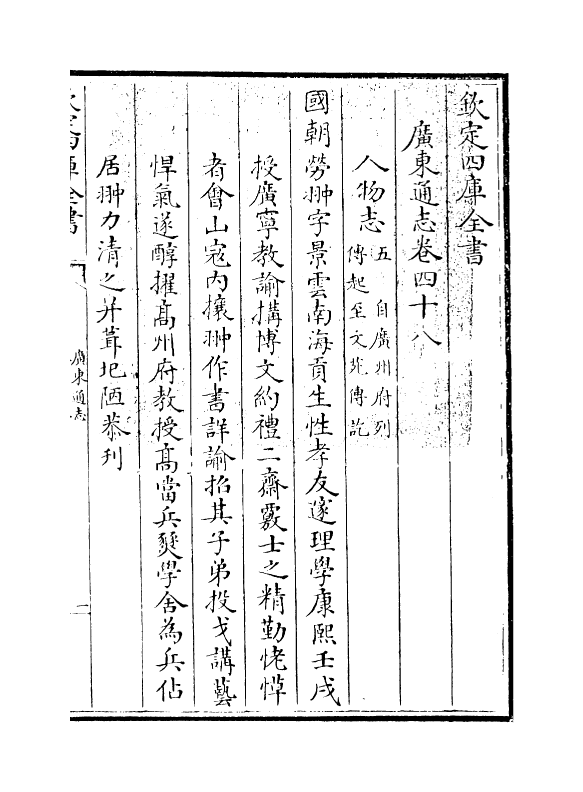 欽定四庫全書
廣東通志卷四十八
人物志五
自廣州府列
傳起至文苑傳訖
國朝勞翀字景雲南海貢生性孝友邃理學康熙壬戌
授廣寧教諭搆博文約禮二齋覈士之精勤恅愺
者會山宼内攘翀作書詳諭招其子弟投戈講藝
悍氣遂醇擢髙州府教授髙當兵燹學舍為兵佔
居翀力清之并葺圯陋恭刋
欽定四庫全書
廣東通志